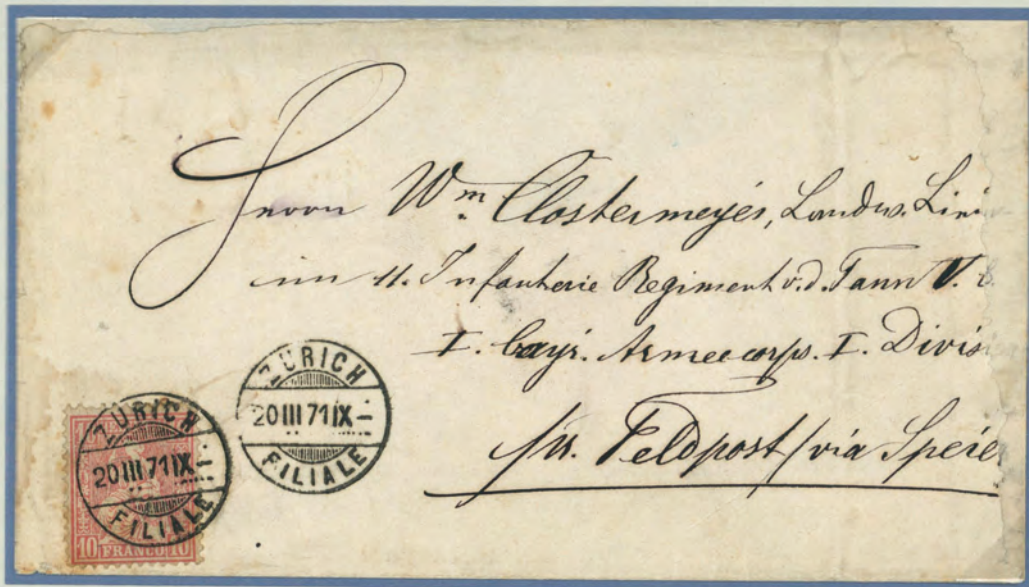 Herrn Wm. Clostermeyer, Landw.
im 11. Infanterie Regiment v. d. Tann V.
I. bayr. Armeecorps. I. Divis
pr. Feldpost / via Speie
ZÜRICH
20 III 71 IX
FILIALE I.
ZÜRICH
20 III 71 IX
FILIALE I.
10 FRANCO 10